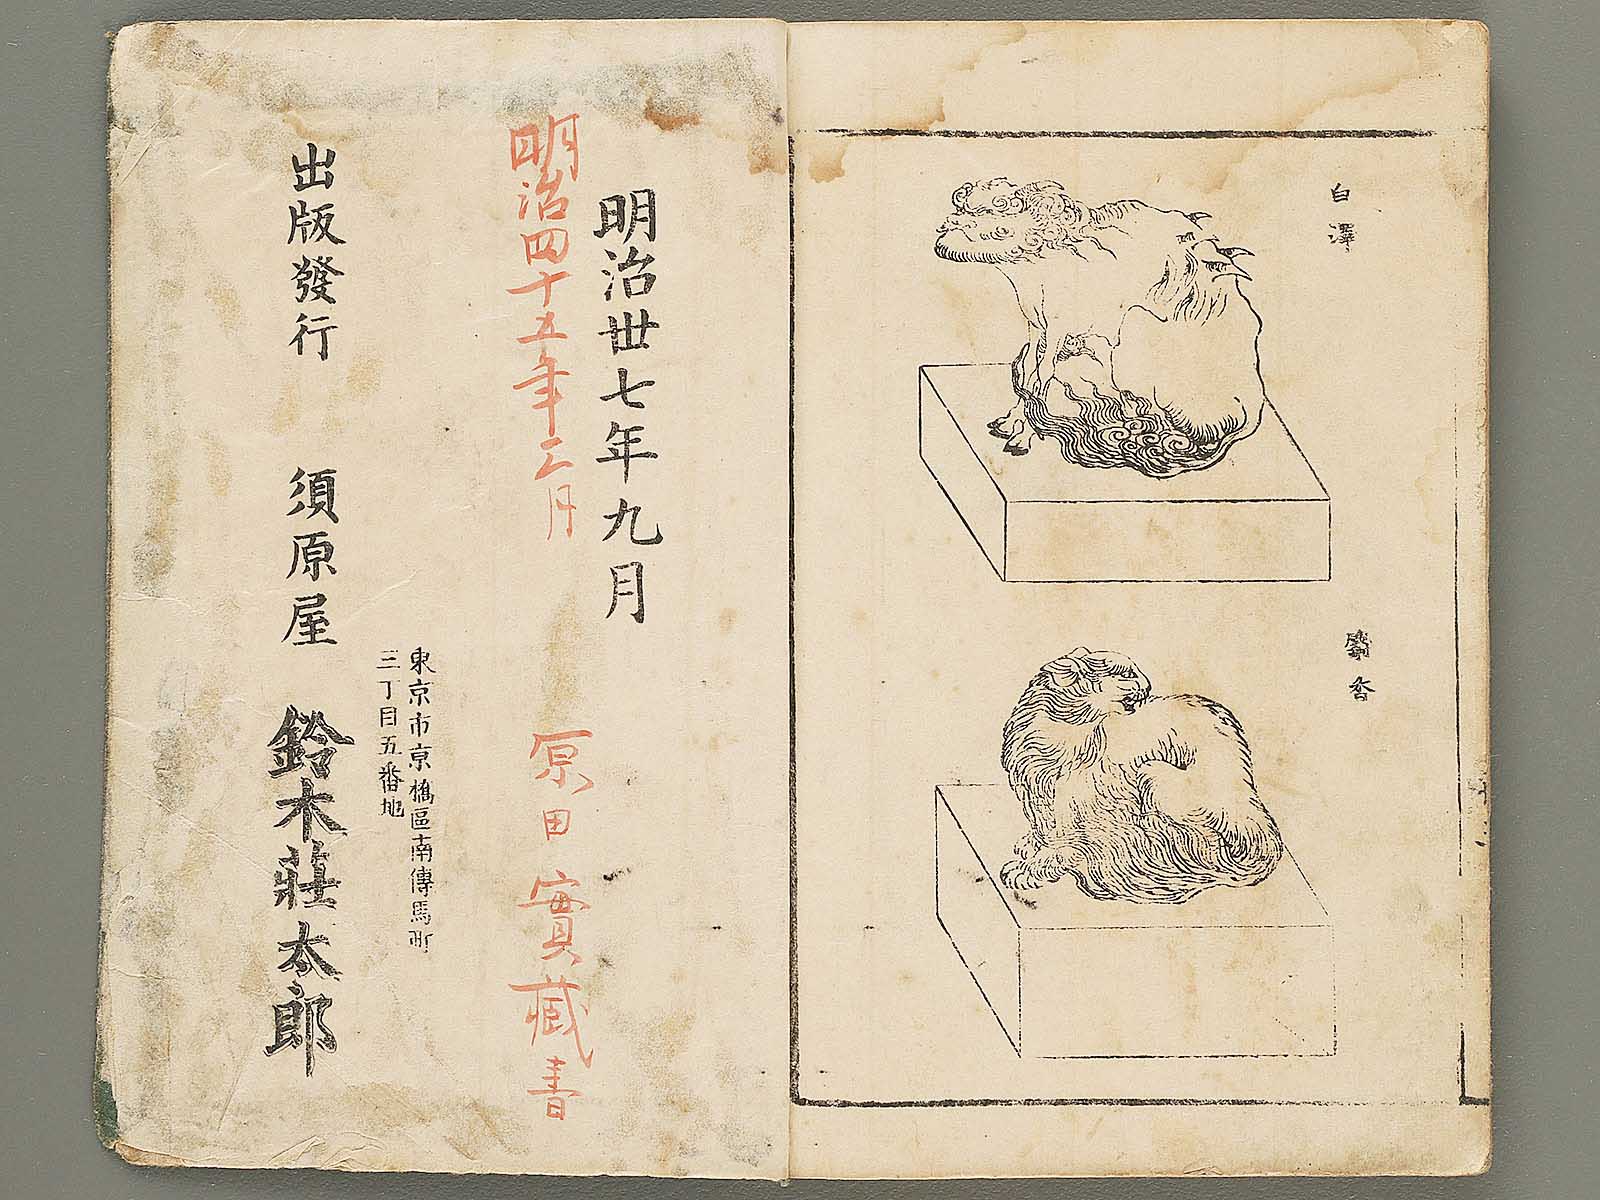 白澤
香
明治丗七年九月
明治四十五年三月
原田實藏書
東京市京橋區南傳馬町
三丁目五番地
出版發行 須原屋 鈴木莊太郎